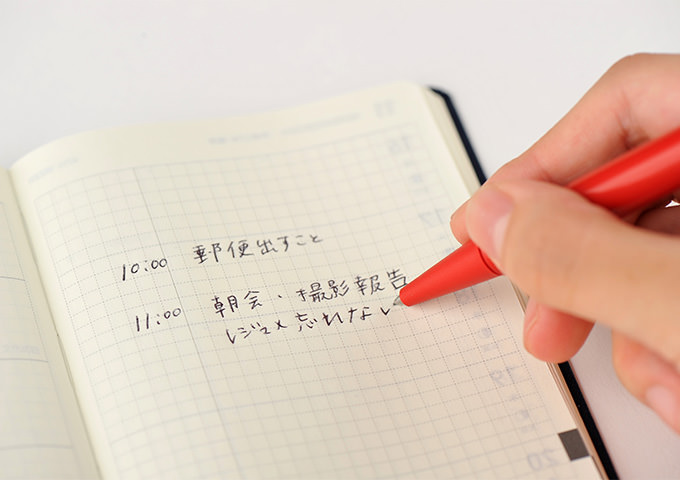 10:00 郵便出すこと
11:00 朝会・撮影報告
レジュメ忘れない